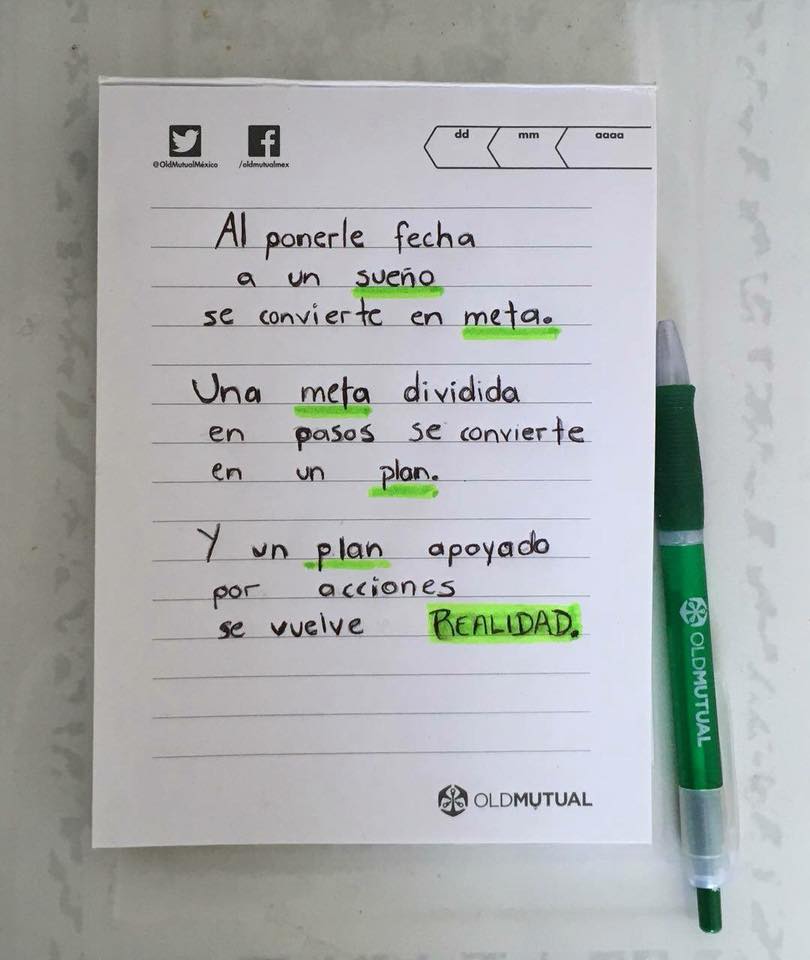 dd mm aaaa
@OldMutualMéxico /oldmutualmex
Al ponerle fecha
a un sueño
se convierte en meta.
Una meta dividida
en pasos se convierte
en un plan.
Y un plan apoyado
por acciones
se vuelve REALIDAD.
OLDMUTUAL
OLDMUTUAL